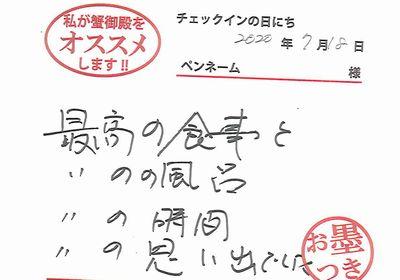 私が蟹御殿を
オススメ
します!!
チェックインの日にち
2020 年 7 月 18 日
ペンネーム 様
最高の食事と
〃 のの風呂
〃 の時間
〃 の思い出でした
お墨つき